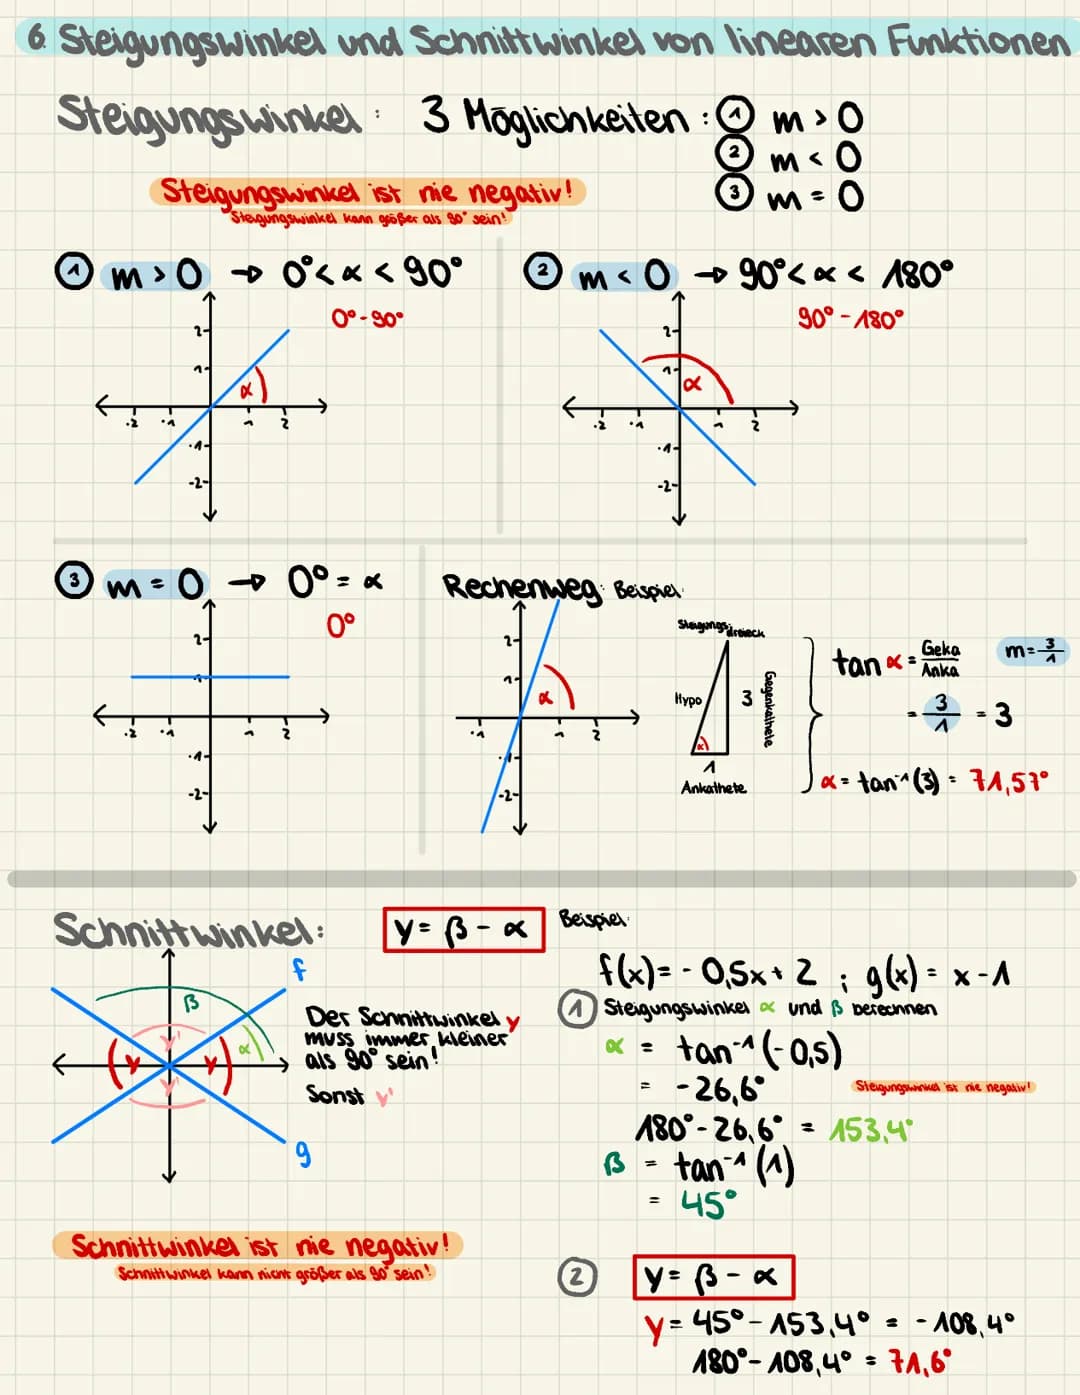 6. Steigungswinkel und Schnittwinkel von linearen Funktionen
Steigungswinkel: 3 Möglichkeiten: ① m > 0
② m < 0
③ m = 0
Steigungswinkel ist nie negativ!
Steigungswinkel kann größer als 90° sein!
① m > 0 → 0° < α < 90°
0° - 90°
2
1
α
-2 -1 1 2
-1
-2
② m < 0 → 90° < α < 180°
90° - 180°
2
1
α
-2 -1 1 2
-1
-2
③ m = 0 → 0° = α
0°
2
1
-2 -1 1 2
-1
-2
Rechenweg: Beispiel:
2
1
α
-1 1 2
-1
-2
Steigungs-
dreieck
Hypo
3
Gegenkathete
α
1
Ankathete
tan α = Geka / Anka
m = 3/1
= 3/1 = 3
α = tan⁻¹(3) = 71,57°
Schnittwinkel:
γ = β - α
f
β
γ'
γ
γ
α
γ'
g
Der Schnittwinkel γ
muss immer kleiner
als 90° sein!
Sonst γ'
Schnittwinkel ist nie negativ!
Schnittwinkel kann nicht größer als 90° sein!
Beispiel:
f(x) = - 0,5x + 2 ; g(x) = x - 1
① Steigungswinkel α und β berechnen
α = tan⁻¹(-0,5)
= -26,6°
Steigungswinkel ist nie negativ!
180° - 26,6° = 153,4°
β = tan⁻¹(1)
= 45°
② γ = β - α
γ = 45° - 153,4° = - 108,4°
180° - 108,4° = 71,6°